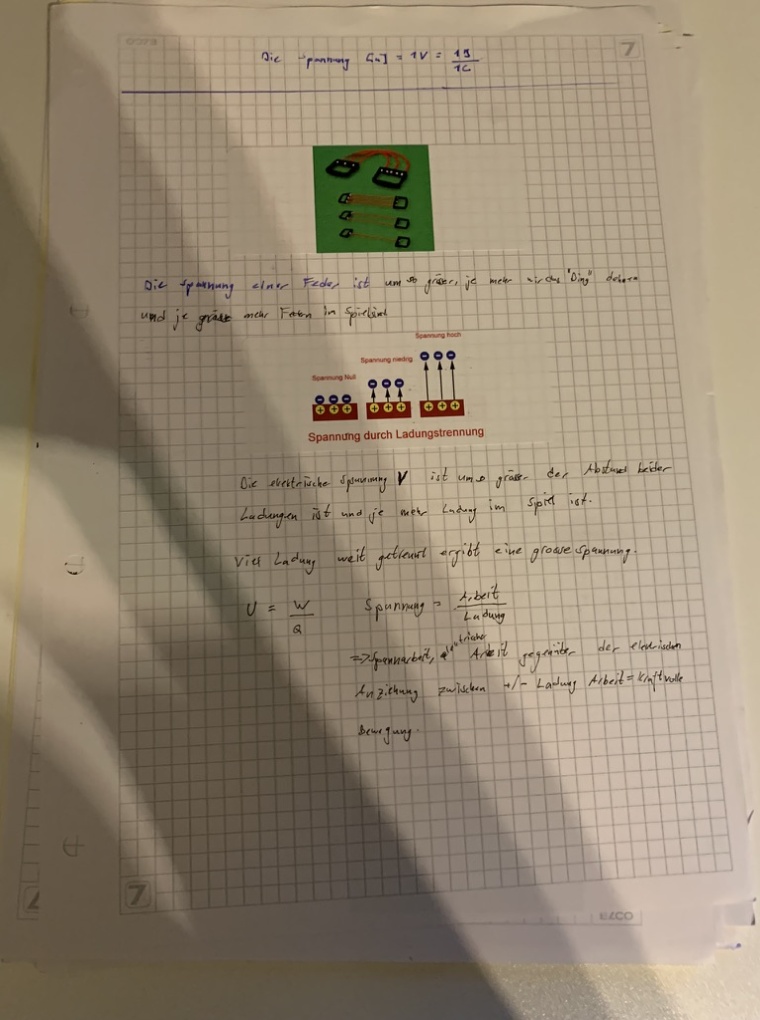 7
Die Spannung [u] = 1V = 1J / 1C
Die Spannung einer Feder ist um so gröser, je mehr "Ding" dehnen
und je mehr Federn im Spiel sind
Spannung hoch
Spannung niedrig
Spannung Null
Spannung durch Ladungstrennung
Die elektrische Spannung V ist um so gröser der Abstand beider
Ladungen ist und je mehr Ladung im Spiel ist.
Viel Ladung weit getrennt ergibt eine grosse Spannung.
U = W / Q Spannung = Arbeit / Ladung
=> Spannarbeit, Arbeit gegenüber der elektrischen
Anziehung zwischen +/- Ladung Arbeit = Kraftvolle
Bewegung.
7
ELCO